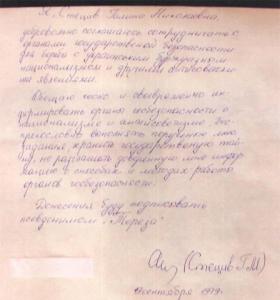 Я, Стеців Галина Николаевна,
добровольно соглашаюсь сотрудничать с
органами государственной безопасности
для борьбы с украинским буржуазным
национализмом и другими антисоветски-
ми явлениями.
Обещаю и своевременно ин-
формировать органы госбезопасности о
и антисоветчине
выполнять поручения мне
задания, хранить государственную тай-
ну, не разглашать доверенную мне инфор-
мацию о способах и методах работы
органов госбезопасности.
Донесения буду подписывать
псевдонимом "Тереза"
(Стеців Г.М)
сентября 1979г.